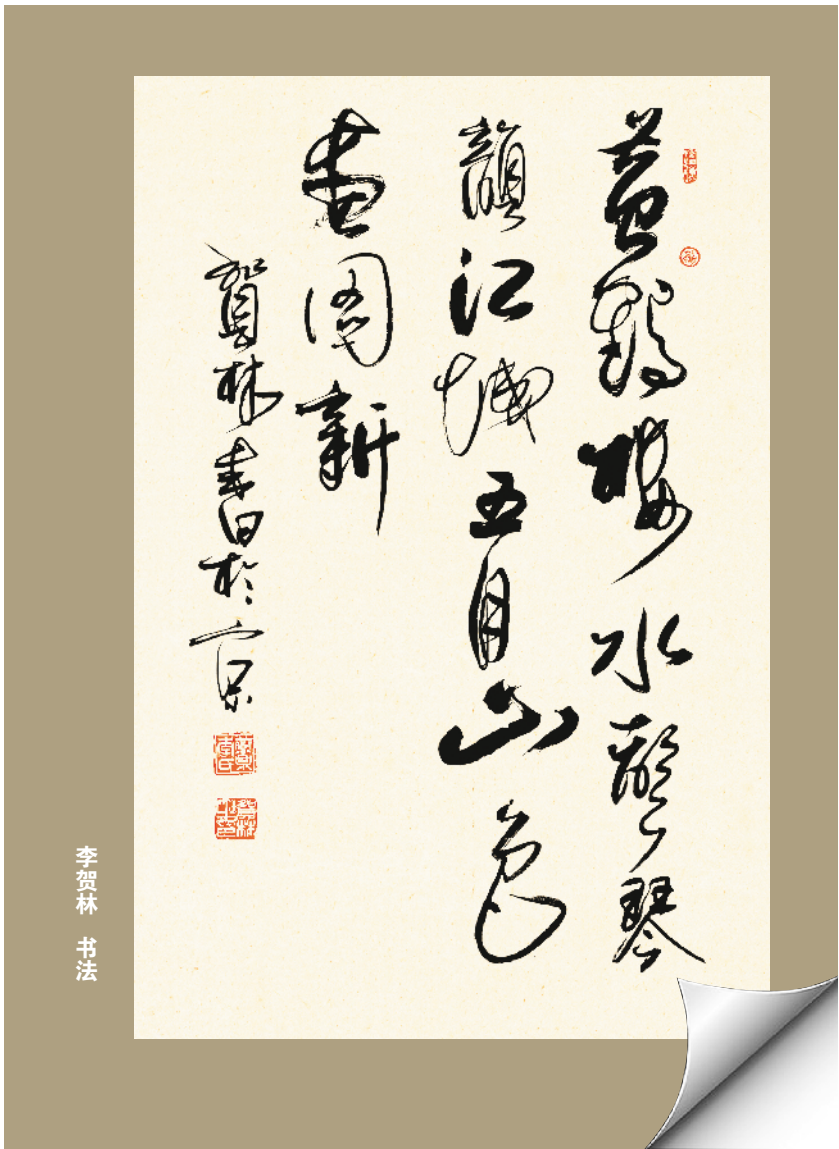 黄鹤楼水声琴
韵江城五月山色
画图新
贺林书于京
李贺林 书法